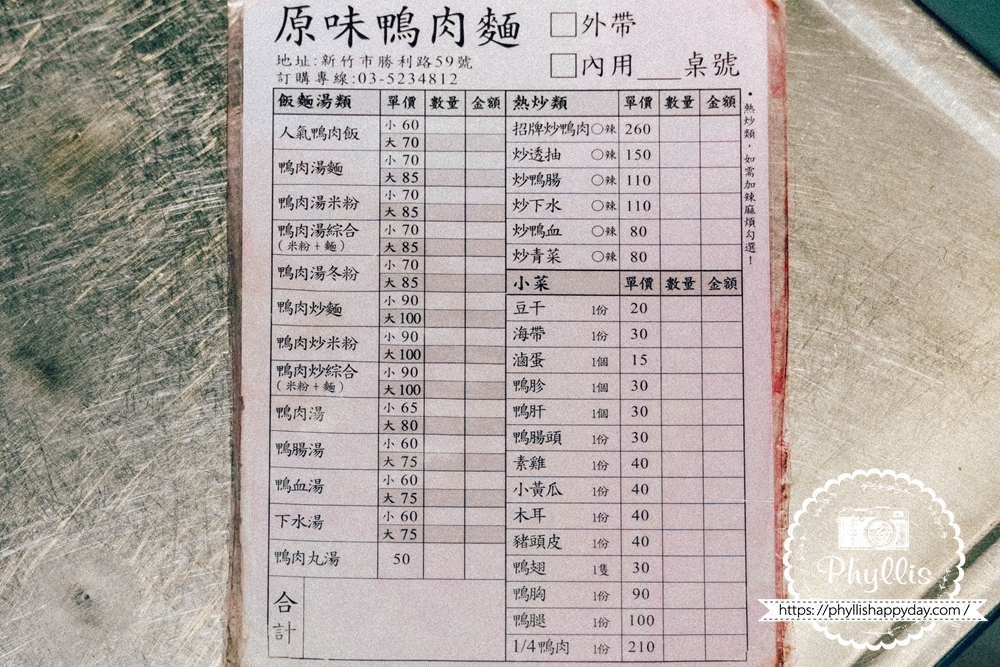 原味鴨肉麵
□外帶
□內用___桌號
地址:新竹市勝利路59號
訂購專線:03-5234812
飯麵湯類 單價 數量 金額
人氣鴨肉飯 小 60
大 70
鴨肉湯麵 小 70
大 85
鴨肉湯米粉 小 70
大 85
鴨肉湯綜合 小 70
(米粉+麵) 大 85
鴨肉湯冬粉 小 70
大 85
鴨肉炒麵 小 90
大 100
鴨肉炒米粉 小 90
大 100
鴨肉炒綜合 小 90
(米粉+麵) 大 100
鴨肉湯 小 65
大 80
鴨腸湯 小 60
大 75
鴨血湯 小 60
大 75
下水湯 小 60
大 75
鴨肉丸湯 50
合計
熱炒類 單價 數量 金額
招牌炒鴨肉○辣 260
炒透抽 ○辣 150
炒鴨腸 ○辣 110
炒下水 ○辣 110
炒鴨血 ○辣 80
炒青菜 ○辣 80
小菜 單價 數量 金額
豆干 1份 20
海帶 1份 30
滷蛋 1個 15
鴨胗 1個 30
鴨肝 1個 30
鴨腸頭 1份 30
素雞 1份 40
小黃瓜 1份 40
木耳 1份 40
豬頭皮 1份 40
鴨翅 1隻 30
鴨胸 1份 90
鴨腿 1份 100
1/4鴨肉 1份 210
•熱炒類·如需加辣麻煩勾選!
Phyllis
https://phyllishappyday.com/